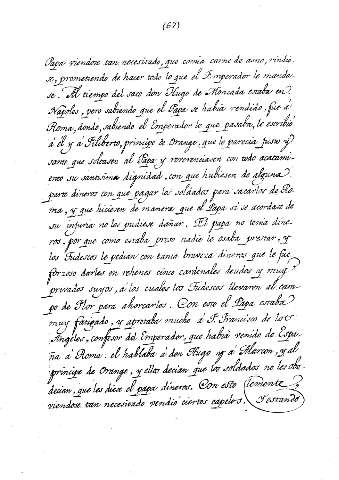 (67)
Papa viendose tan necesitado, que comia carne de asno, rindio-
se, prometiendo de hacer todo lo que el Emperador le manda-
se. Al tiempo del saco don Hugo de Moncada estaba en
Napoles, pero sabiendo que el Papa se habia rendido, fue á
Roma, donde, sabiendo el Emperador lo que pasaba, le escribió
á él y á Filiberto, principe de Orange, que le parecia justo y
santo que soltasen al Papa y reverenciasen con todo acatami-
ento su santisima dignidad, con que hubiesen de alguna
parte dineros con que pagar los soldados para sacarlos de Ro-
ma, y que hiciesen de manera que el Papa si se acordase de
su injuria no les pudiese dañar. El papa no tenia dine-
ros, por que como estaba preso nadie le osaba prestar, y
los Tudescos le pedian con tanta braveza dineros que le fue
forzoso darles en rehenes cinco cardenales deudos y muy
privados suyos, á los cuales los Tudescos llevaron al cam-
po de Flor para ahorcarlos. Con esto el Papa estaba
muy fatigado, y apretaba mucho á F. Francisco de los
Angeles, confesor del Emperador, que habia venido de Espa-
ña á Roma. el hablaba á don Hugo y á Alarcon, y al
principe de Orange, y ellos decian que los soldados no les obe-
decian, que les diese el papa dineros. Con esto Clemente
viendose tan necesitado vendió ciertos capelos. Y estando